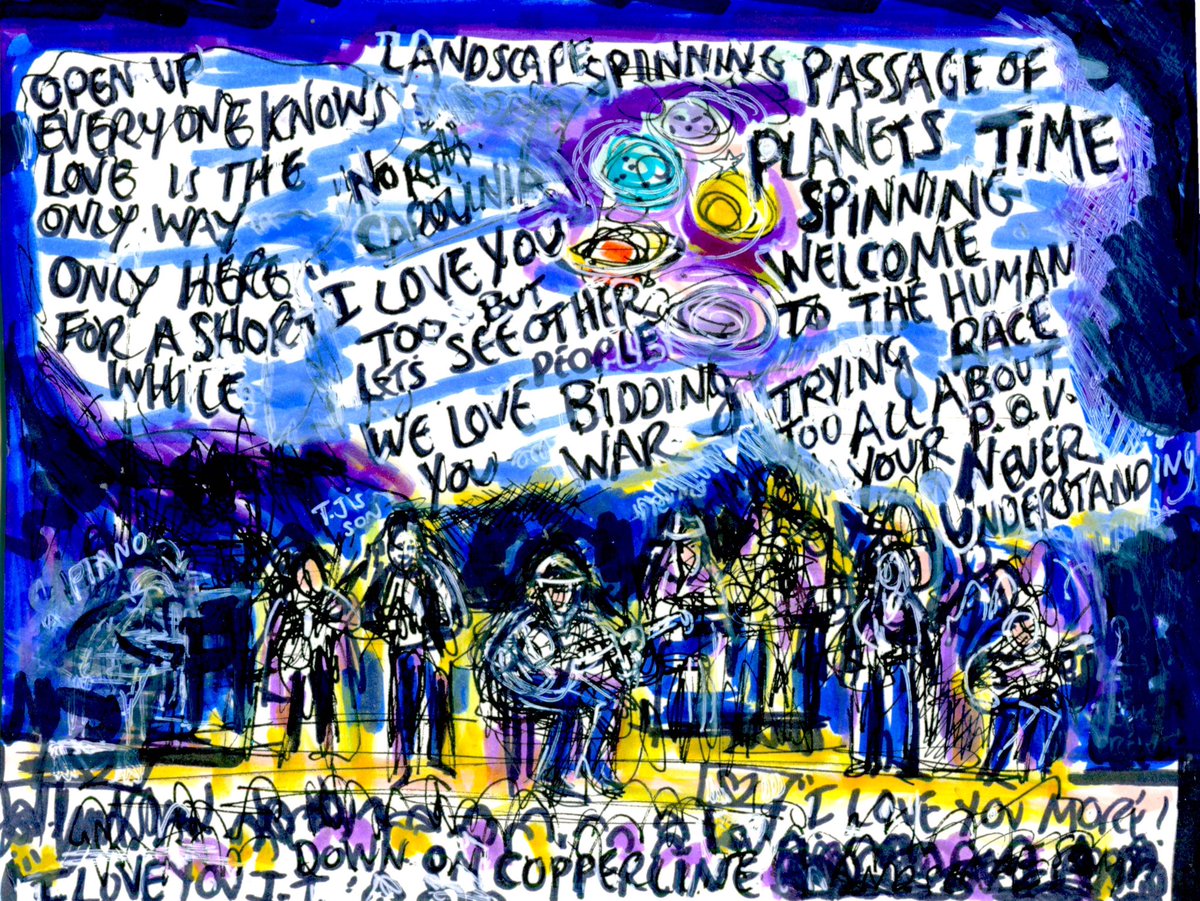 OPEN UP
EVERYONE KNOWS
LOVE IS THE
ONLY WAY
ONLY HERE
FOR A SHORT
WHILE
LANDSCAPE
"NORTH
CAROLINIA
"I LOVE YOU
TOO BUT
LETS SEE OTHER
PEOPLE
WE LOVE BIDDING
YOU WAR
SPINNING PASSAGE OF
PLANETS TIME
SPINNING
WELCOME
TO THE HUMAN
RACE
TRYING
TOO ALL ABOUT
YOUR P.O.V.
NEVER
UNDERSTANDING
T.J'S
SON
PIANO
"I LOVE YOU MORE"!
DOWN ON COPPERLINE
"I LOVE YOU J.T."